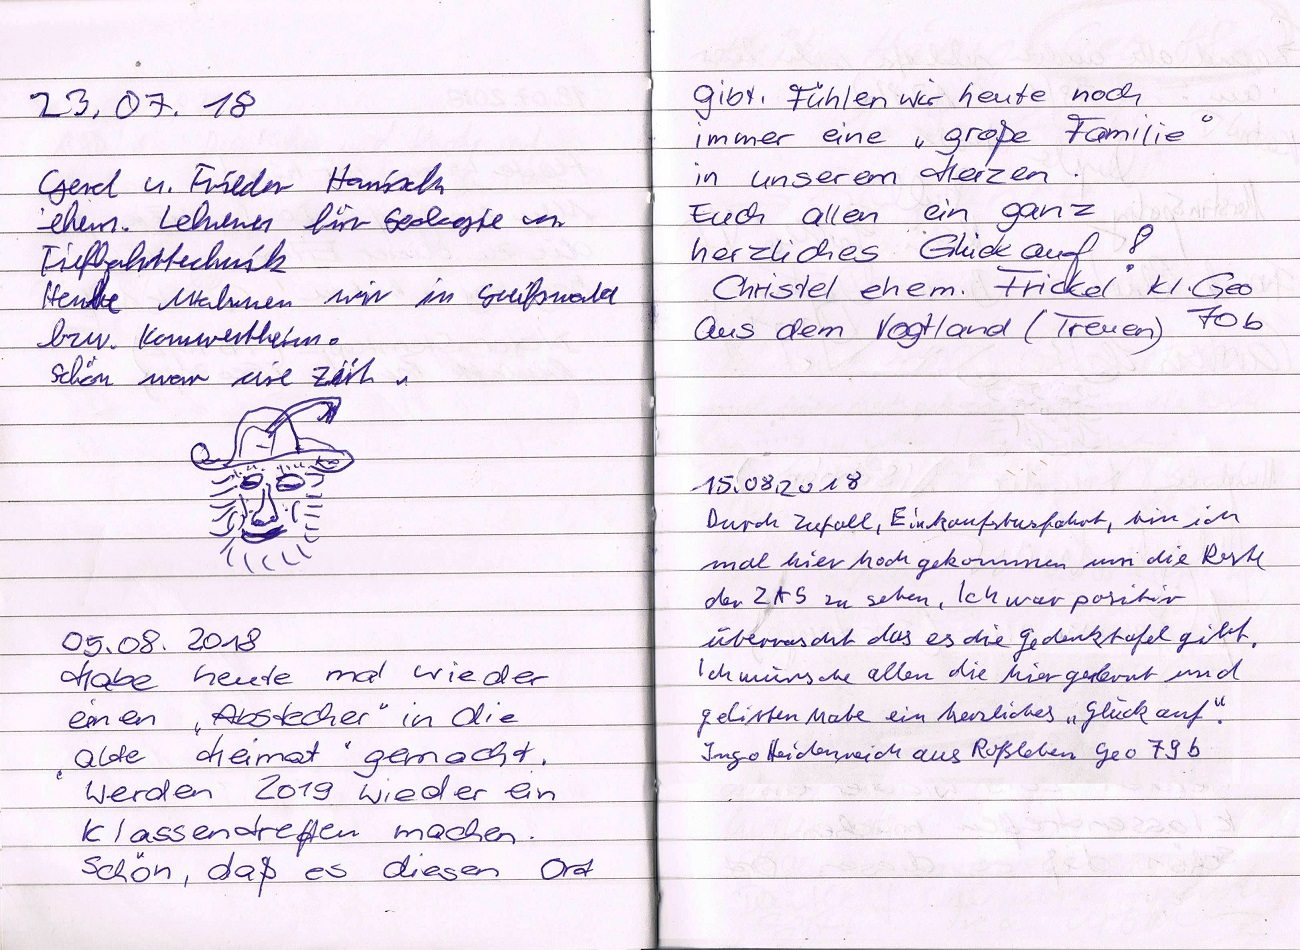 23.07.18
Gerd u. Frieder Hanisch
ehem. Lehrer für Geologie u
Tiefbohrtechnik
Heute wir in Greifswald
bzw.
Schön war die Zeit.
05.08.2018
Habe heute mal wieder
einen „Abstecher" in die
„alte Heimat" gemacht.
Werden 2019 wieder ein
Klassentreffen machen.
Schön, daß es diesen Ort
gibt. Fühlen wir heute noch
immer eine „große Familie"
in unserem Herzen.
Euch allen ein ganz
herzliches Glück auf!
Christel ehem. Frickel Kl. Geo
aus dem Vogtland (Treuen) 70b
15.08.2018
Durch Zufall, Einkaufsbusfahrt, bin ich
mal hier hochgekommen um die Reste
der ZAS zu sehen. Ich war positiv
überrascht das es die Gedenktafel gibt.
Ich wünsche allen die hier gelernt und
gelitten habe ein herzliches „Glück auf".
Ingo Heidenreich aus Roßleben Geo 79b